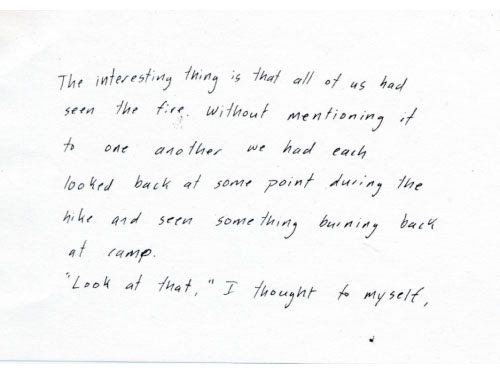 The interesting thing is that all of us had
seen the fire. Without mentioning it
to one another we had each
looked back at some point during the
hike and seen something burning back
at camp.
"Look at that," I thought to myself,